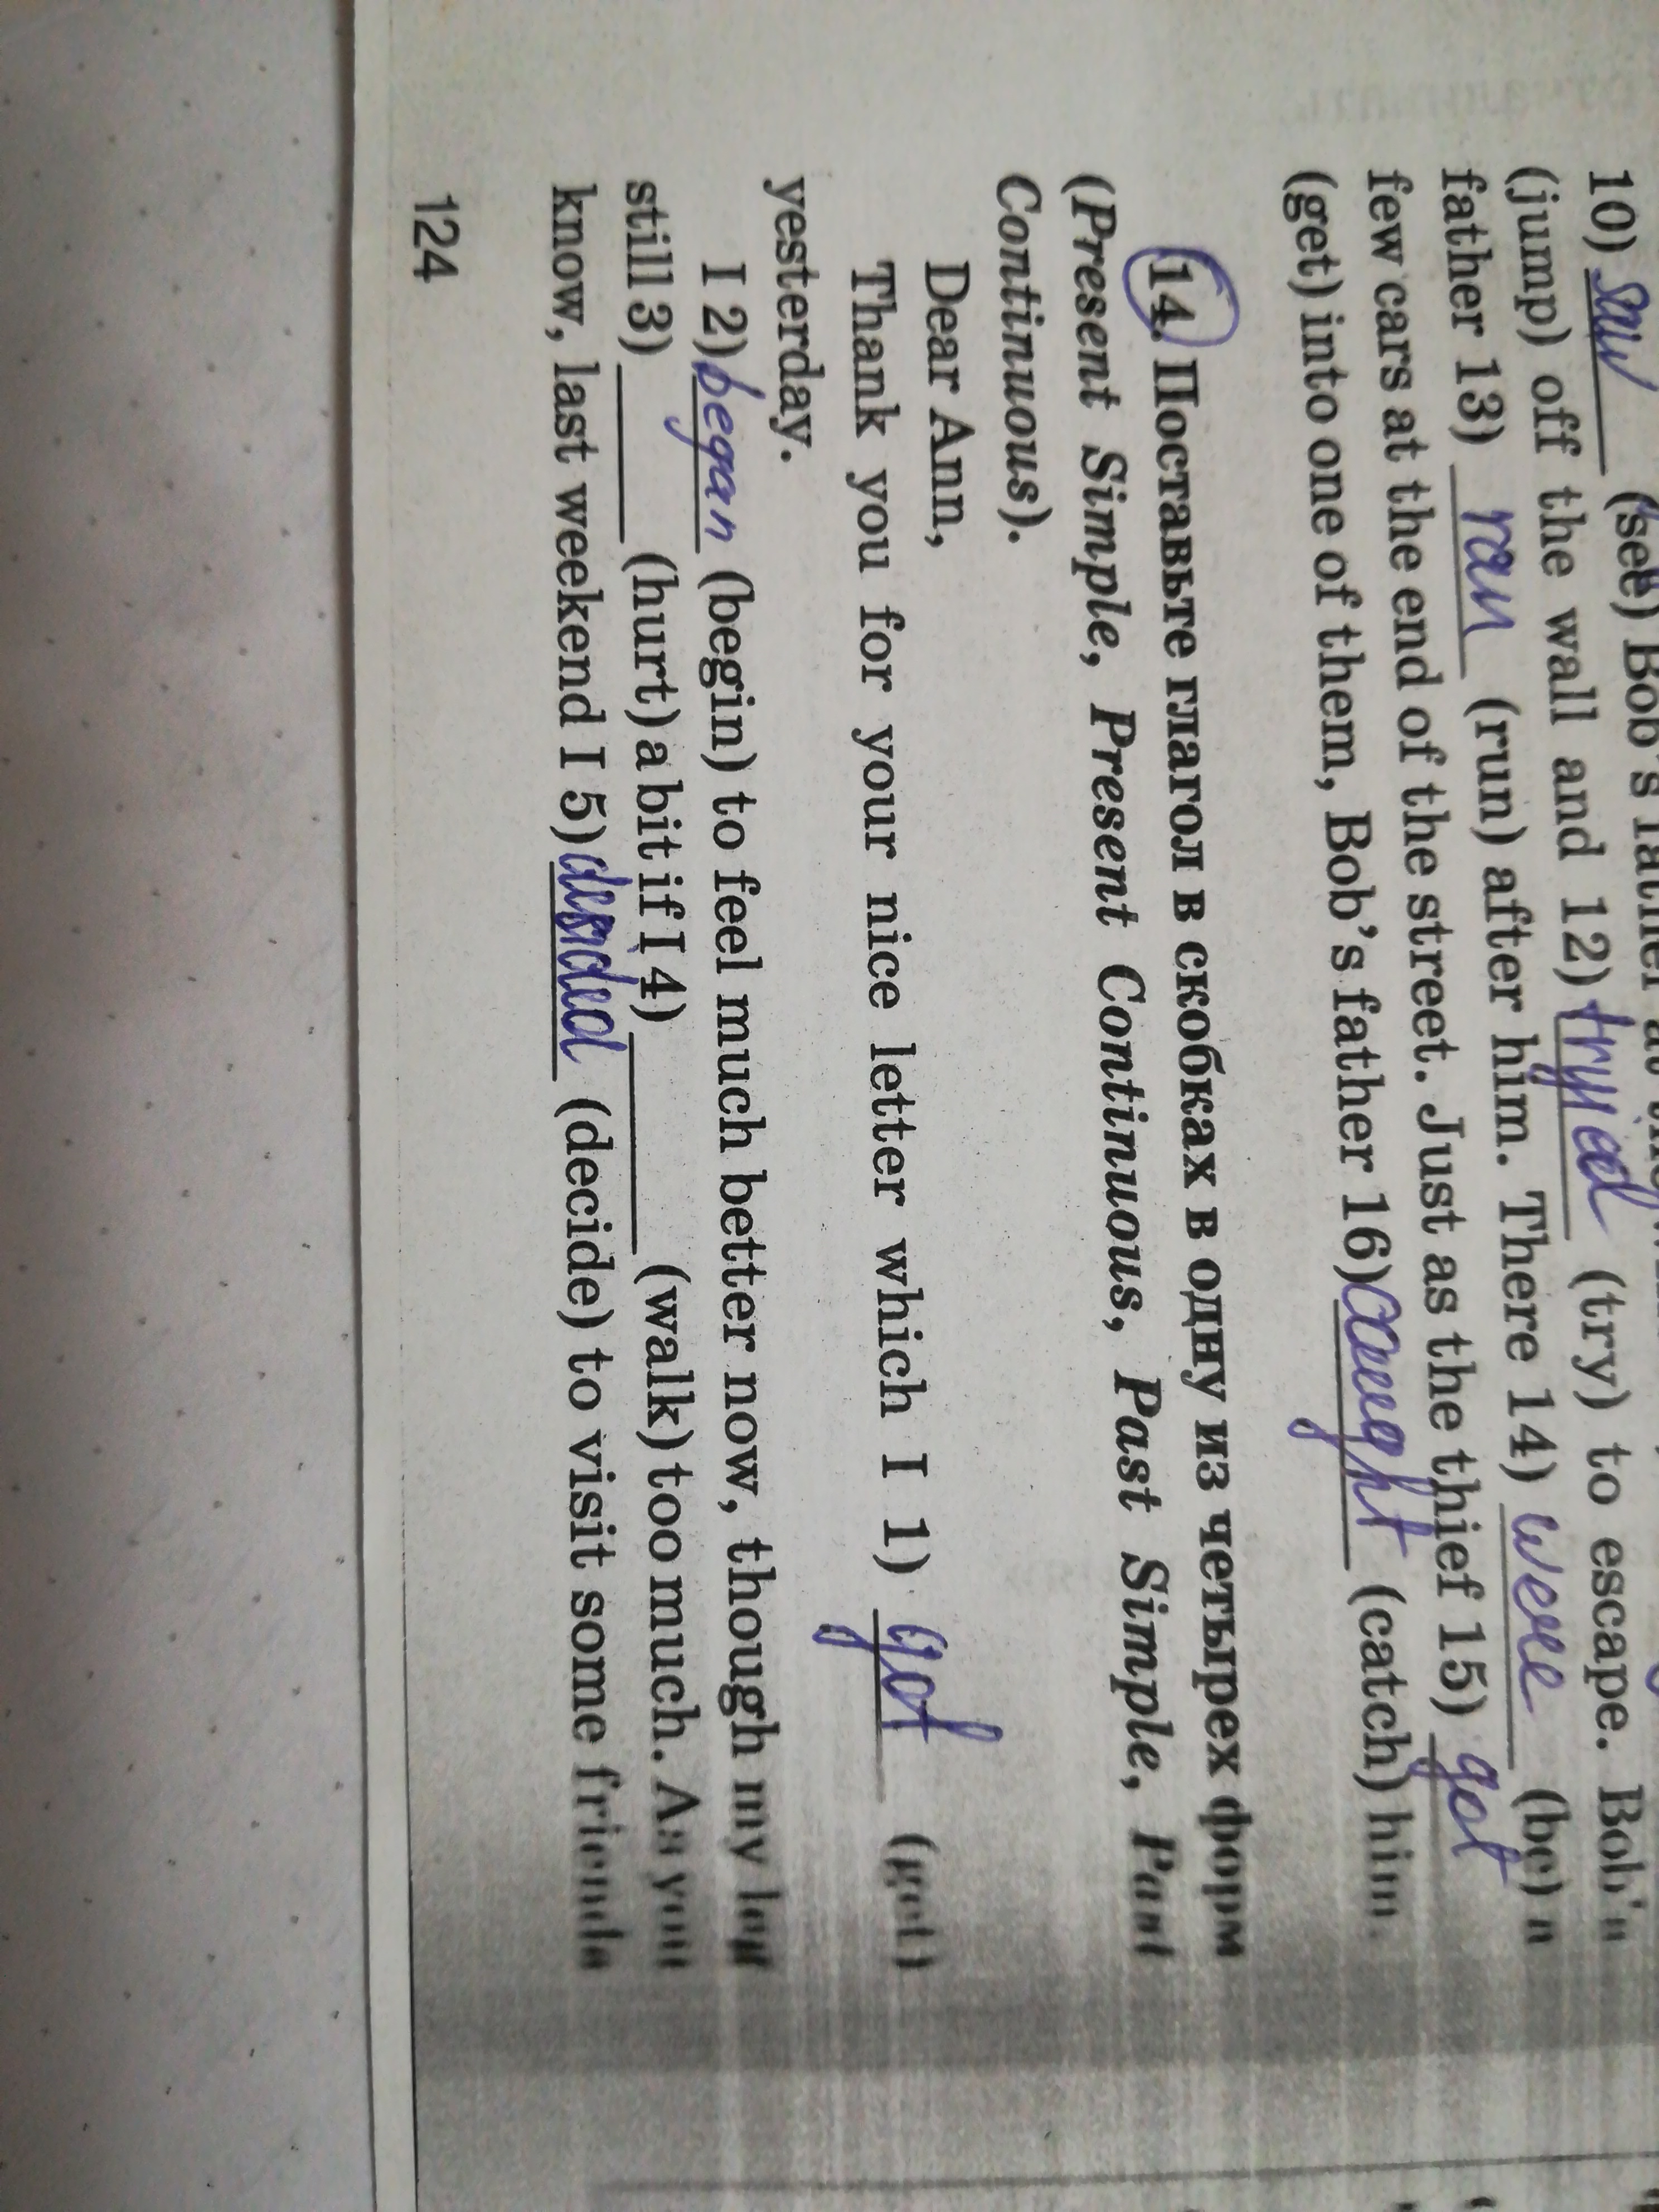 10) saw (see) Bob's father
(jump) off the wall and 12) tryed (try) to escape. Bob's
father 13) ran (run) after him. There 14) were (be) a
few cars at the end of the street. Just as the thief 15) got
(get) into one of them, Bob's father 16) caught (catch) him.
14. Поставьте глагол в скобках в одну из четырех форм
(Present Simple, Present Continuous, Past Simple, Past
Continuous).
Dear Ann,
Thank you for your nice letter which I 1) got (get)
yesterday.
I 2) began (begin) to feel much better now, though my leg
still 3) ______ (hurt) a bit if I 4) ______ (walk) too much. As you
know, last weekend I 5) desided (decide) to visit some friends
124